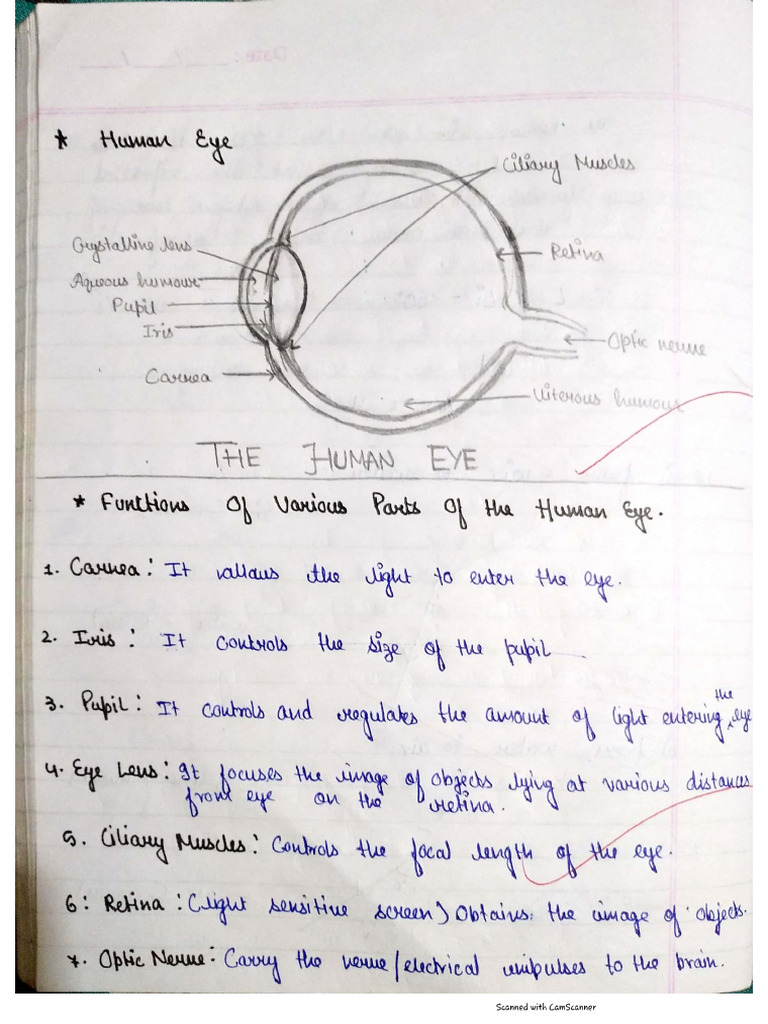 Date: __/__/__
* Human Eye
Ciliary Muscles
Crystalline lens
Retina
Aqueous humour
Pupil
Iris
Optic nerve
Carnea
Viterous humour
THE HUMAN EYE
* Functions Of Various Parts Of the Human Eye.
1. Carnea: It allows the light to enter the eye.
2. Iris: It controls the size of the pupil
3. Pupil: It controls and regulates the amount of light entering the eye
4. Eye Lens: It focuses the image of objects lying at various distances
from eye on the retina.
5. Ciliary Muscles: Controls the focal length of the eye.
6: Retina: (light sensitive screen) Obtains the image of objects.
7. Optic Nerve: Carry the nerve/electrical impulses to the brain.
Scanned with CamScanner